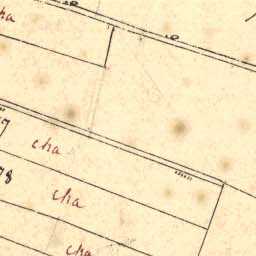 cha
cha
78
cha
cha